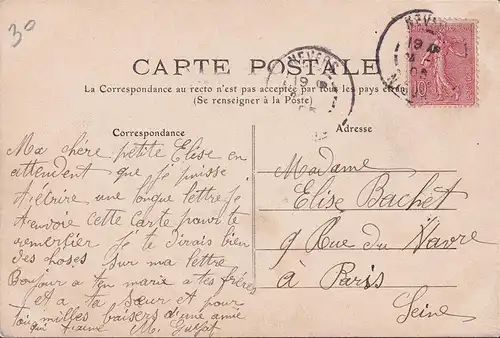 30
NEVERS
CARTE POSTALE
La Correspondance au recto n'est pas acceptée par tous les pays
(Se renseigner à la Poste)
Correspondance
Ma chère petite Elise en
attendant que je puisse
t'étrire, une longue lettre je
t'envoie cette Carte pour te
remerfier Je te dirais bien
des choses sur ma lettre
Bonjour a ton marie a tes frères
et a ta sœur et pour
toi milles baisers d'une amie
qui t'aime M.
Adresse
Madame
Elise Bachet
9 Rue du Havre
à Paris
Seine
10